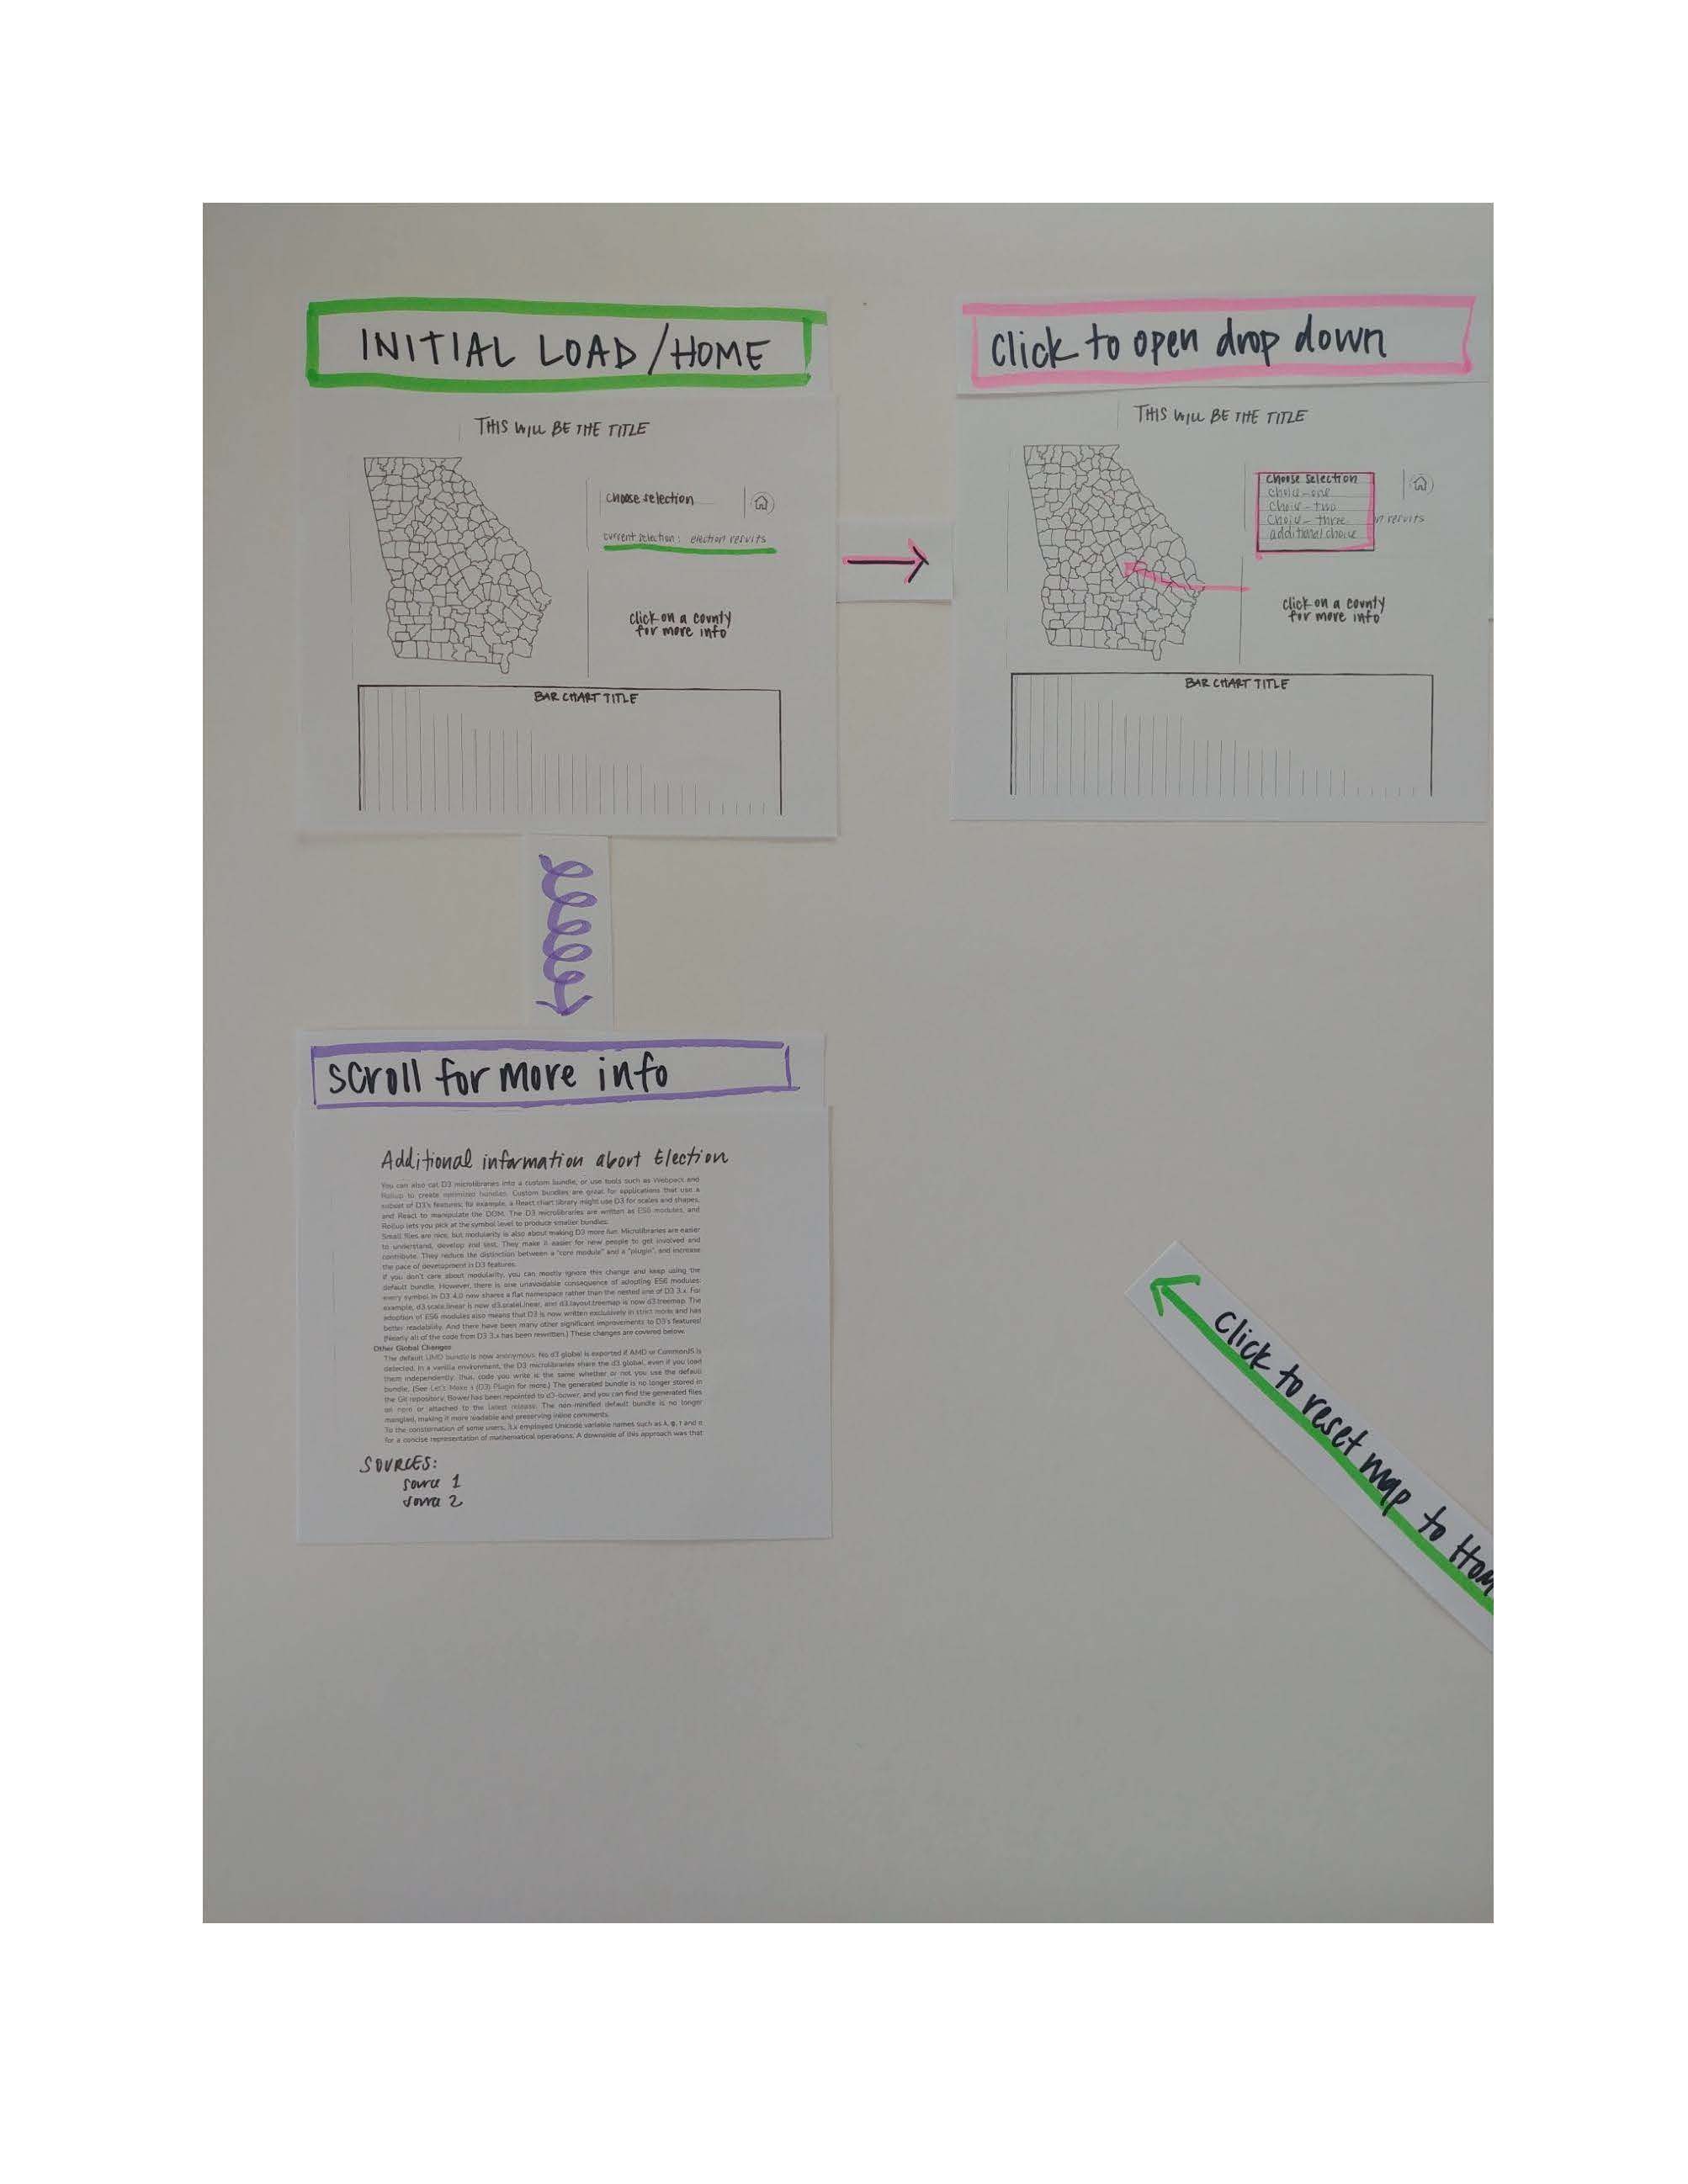 INITIAL LOAD/HOME
THIS WILL BE THE TITLE
choose selection
current selection: election results
click on a county
for more info
BAR CHART TITLE
click to open drop down
THIS WILL BE THE TITLE
choose selection
choice-one
choice-two
choice-three
n results
additional choice
click on a county
for more info
BAR CHART TITLE
scroll for more info
Additional information about Election
You can also cat D3 microlibraries into a custom bundle, or use tools such as Webpack and
Rollup to create optimized bundles. Custom bundles are great for applications that use a
subset of D3's features; for example, a React chart library might use D3 for scales and shapes,
and React to manipulate the DOM. The D3 microlibraries are written as ES6 modules, and
Rollup lets you pick at the symbol level to produce smaller bundles.
Small files are nice, but modularity is also about making D3 more fun. Microlibraries are easier
to understand, develop and test. They make it easier for new people to get involved and
contribute. They reduce the distinction between a "core module" and a "plugin", and increase
the pace of development in D3 features.
If you don't care about modularity, you can mostly ignore this change and keep using the
default bundle. However, there is one unavoidable consequence of adopting ES6 modules:
every symbol in D3 4.0 now shares a flat namespace rather than the nested one of D3 3.x. For
example, d3.scale.linear is now d3.scaleLinear, and d3.layout.treemap is now d3.treemap. The
adoption of ES6 modules also means that D3 is now written exclusively in strict mode and has
better readability. And there have been many other significant improvements to D3's features!
(Nearly all of the code from D3 3.x has been rewritten.) These changes are covered below.
Other Global Changes
The default UMD bundle is now anonymous. No d3 global is exported if AMD or CommonJS is
detected. In a vanilla environment, the D3 microlibraries share the d3 global, even if you load
them independently; thus, code you write is the same whether or not you use the default
bundle. (See Let's Make a (D3) Plugin for more.) The generated bundle is no longer stored in
the Git repository; Bower has been repointed to d3-bower, and you can find the generated files
on npm or attached to the latest release. The non-minified default bundle is no longer
mangled, making it more readable and preserving inline comments.
To the consternation of some users, 3.x employed Unicode variable names such as λ, φ, τ and π
for a concise representation of mathematical operations. A downside of this approach was that
SOURCES:
source 1
source 2
Click to reset map to Hom